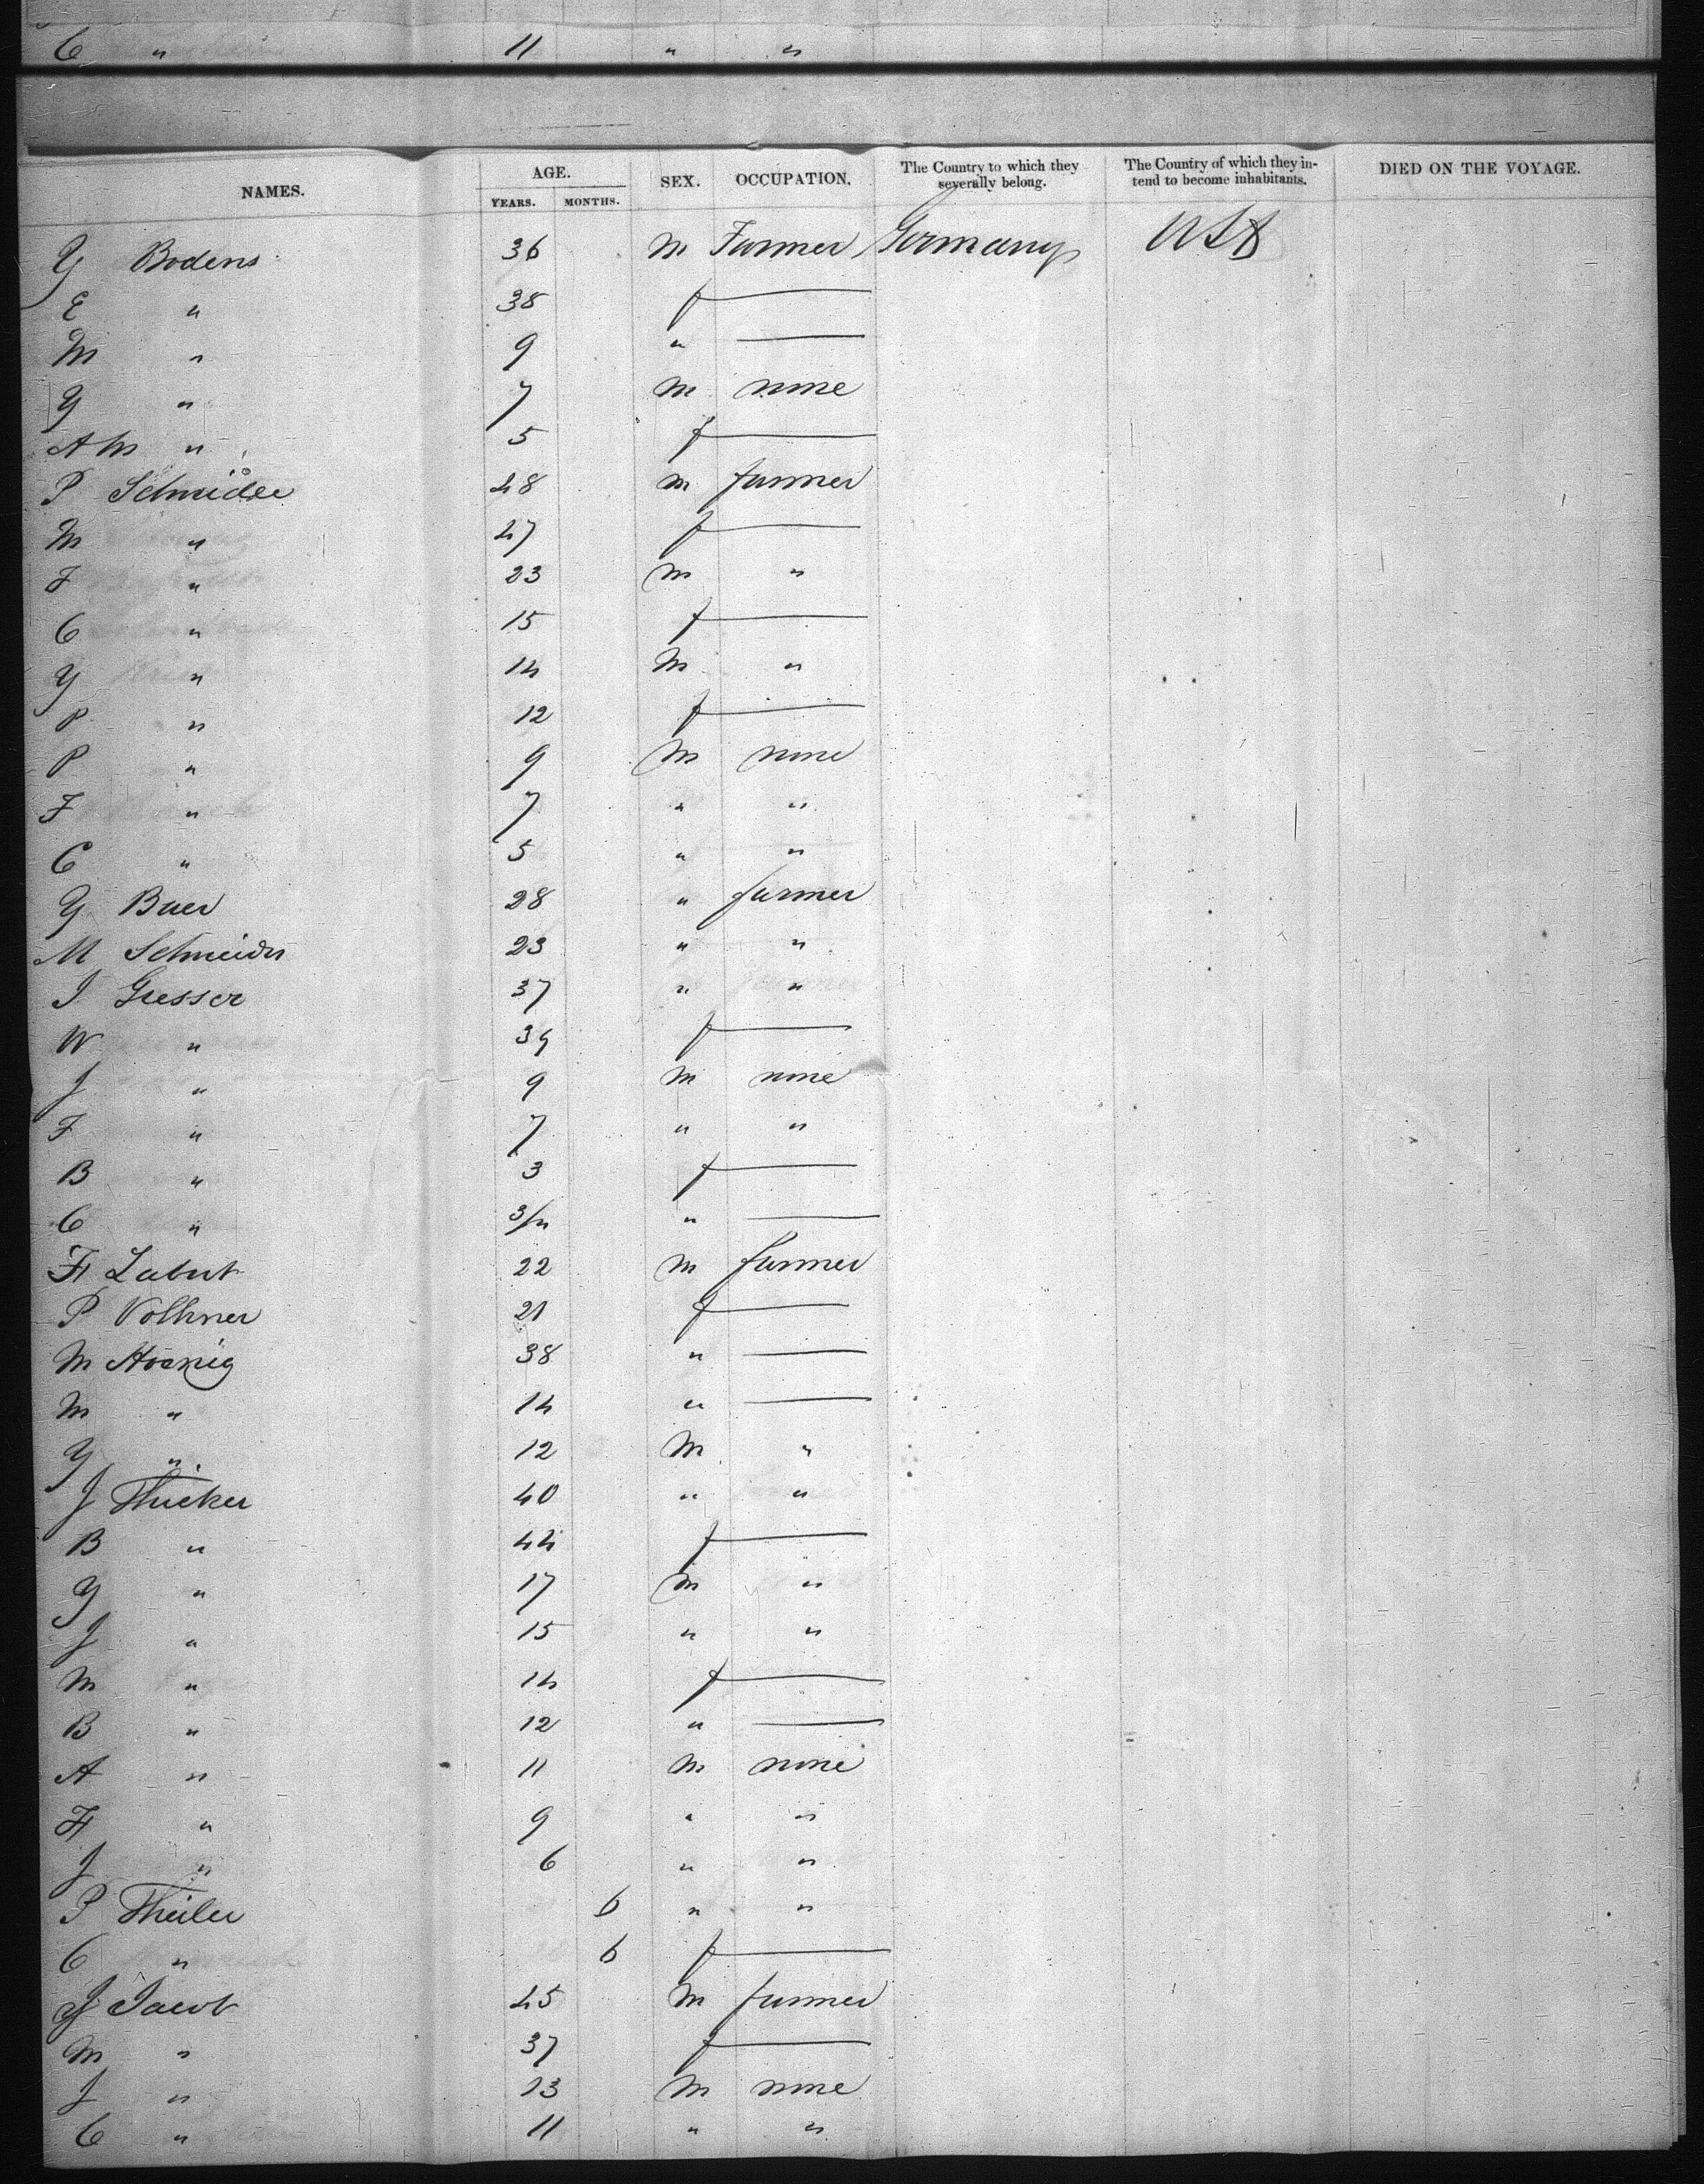 C " 11 " "
NAMES. AGE. YEARS. MONTHS. SEX. OCCUPATION. The Country to which they severally belong. The Country of which they intend to become inhabitants. DIED ON THE VOYAGE.
Y Bodens 36 m Farmer Germany USA
E " 38 f —
M " 9 " —
Y " 7 m none
AM " 5 f —
P 48 m farmer
M " 47 f —
F " 23 m "
C " 15 f —
Y " 14 m "
P " 12 f —
P " 9 m none
F " 7 " "
C " 5 " "
Y Baer 28 " farmer
M Schneider 23 " "
J Gresser 37 " "
W " 39 f —
J " 9 m none
F " 7 " "
B " 3 f —
C " 3/m " —
H 22 m farmer
P Volkner 21 f —
M Hoenig 38 " —
M " 14 " —
Y " 12 m "
J Thicker 40 " "
B " 44 f —
Y " 17 m "
J " 15 " "
M " 14 f —
B " 12 " —
A " 11 m none
H " 9 " "
J " 6 " "
P Theiler 6 " "
C " 6 f —
J Jacob 45 m farmer
M " 37 f —
J " 13 m none
C " 11 " "